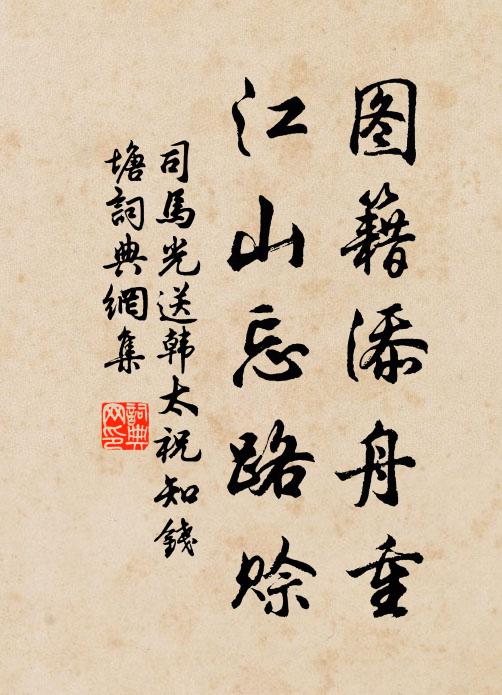 图籍添舟重
江山忘路赊
司馬光送韩太祝知錢
塘詞典網集
詞典
网印